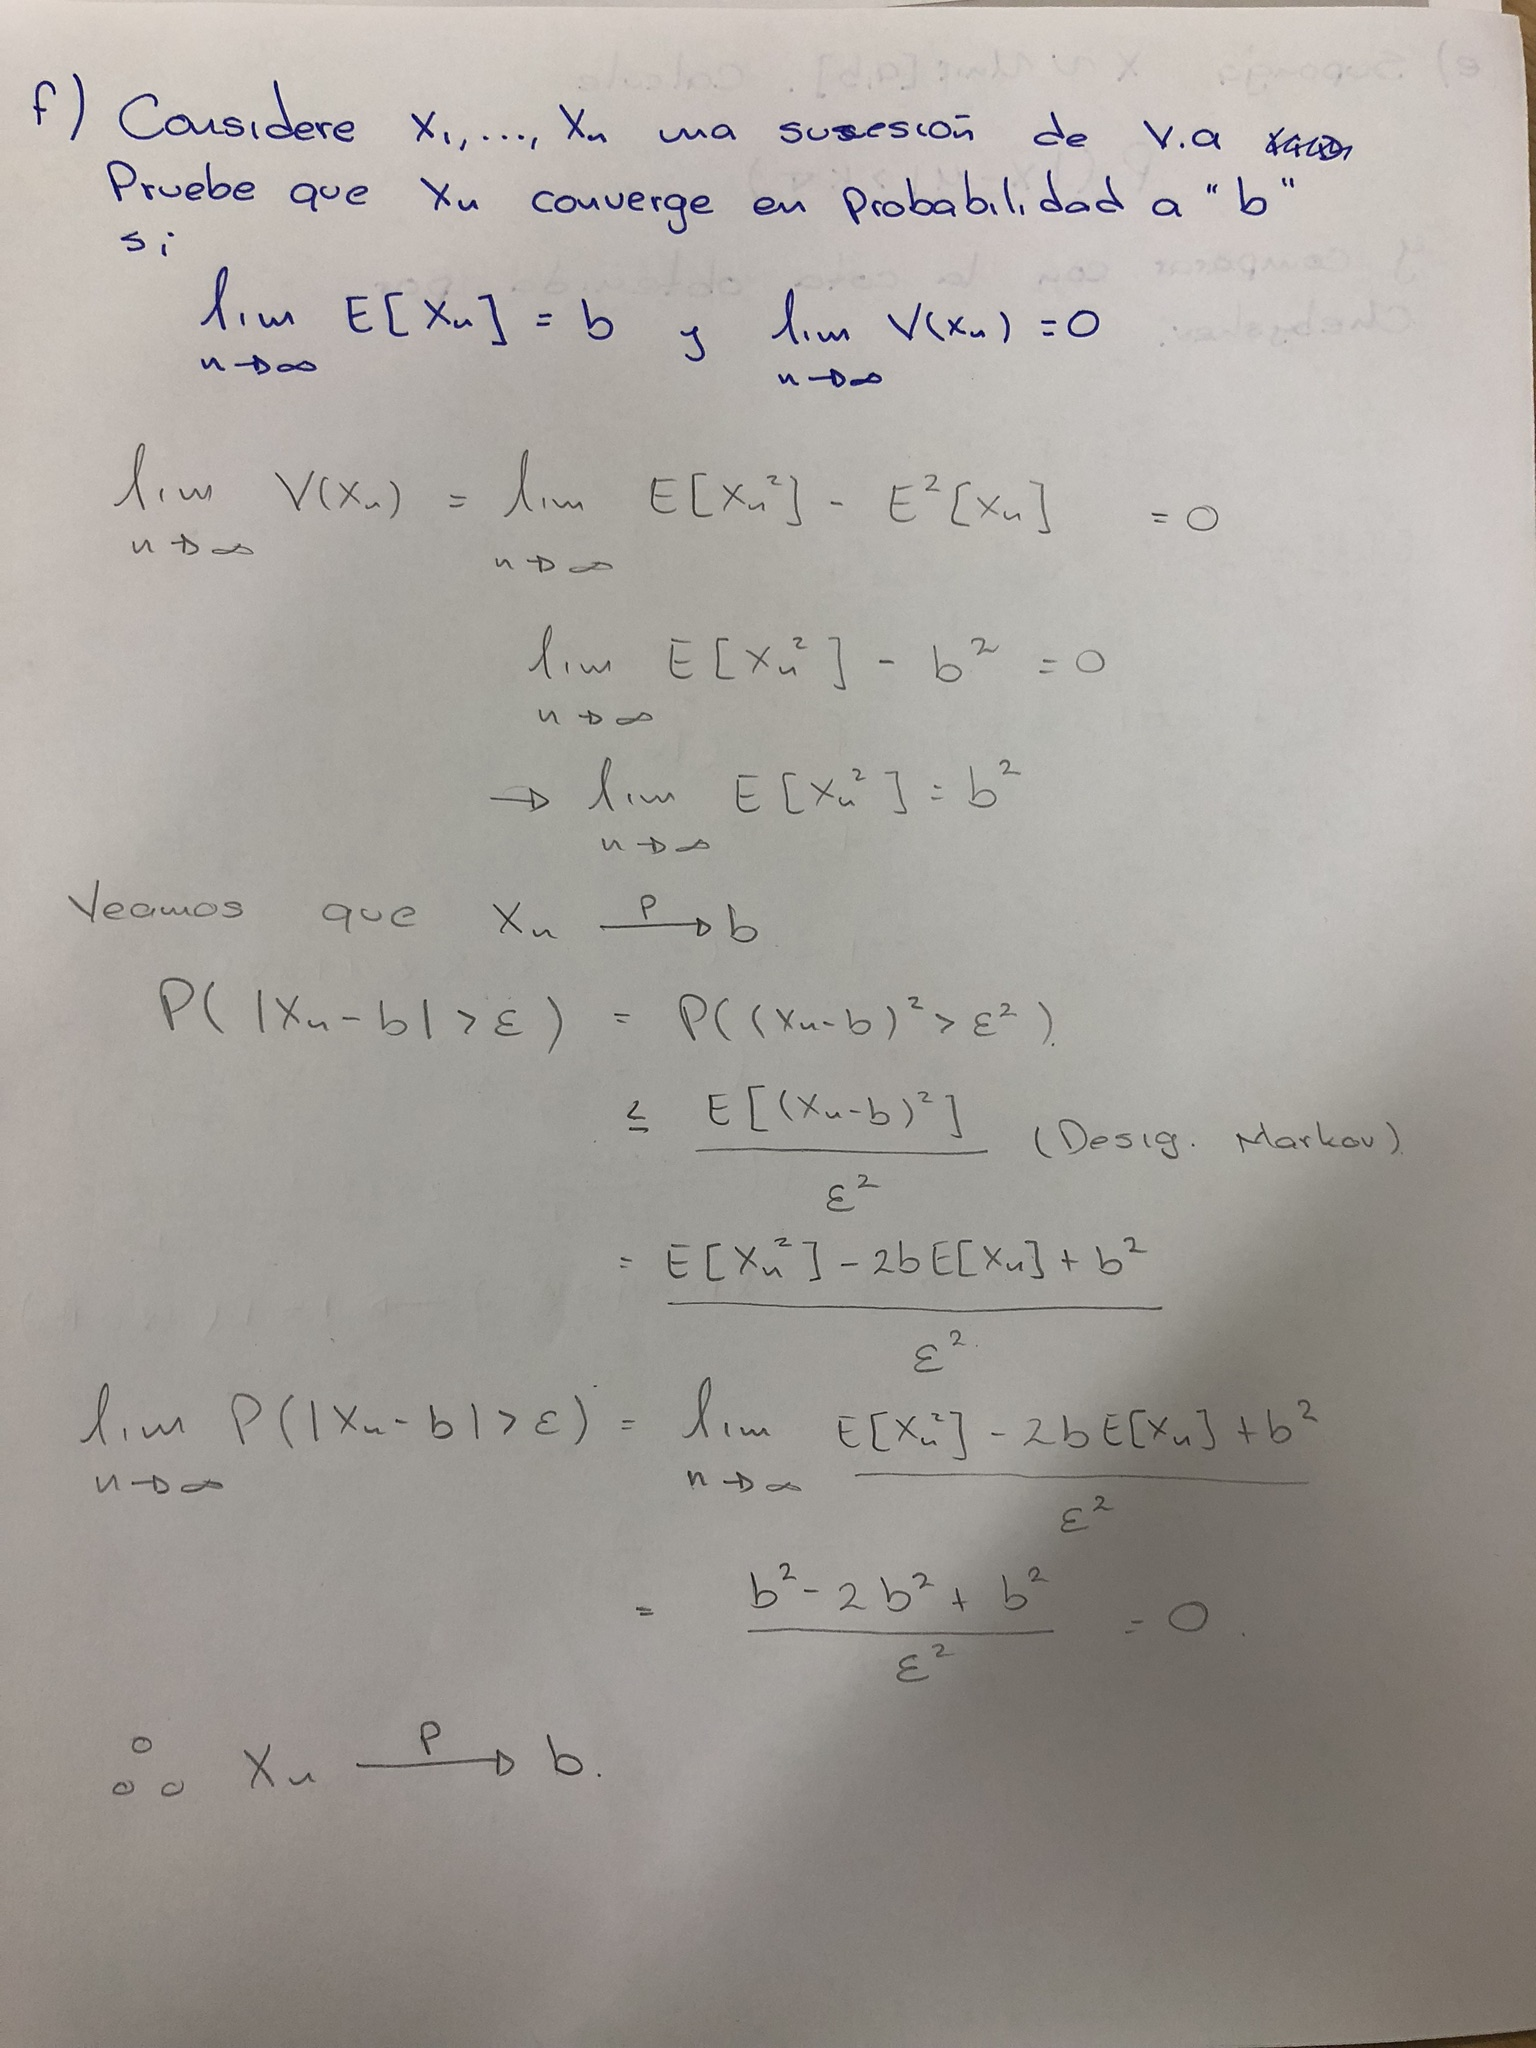 f) Considere X₁, ..., Xₙ una susesción de v.a
Pruebe que Xₙ converge en Probabilidad a "b"
si
lim E[Xₙ] = b y lim V(Xₙ) = 0
n→∞ n→∞
lim V(Xₙ) = lim E[Xₙ²] - E²[Xₙ] = 0
n→∞ n→∞
lim E[Xₙ²] - b² = 0
n→∞
→ lim E[Xₙ²] = b²
n→∞
Veamos que Xₙ —P→ b
P(|Xₙ-b|>ε) = P((Xₙ-b)²>ε²).
≤ E[(Xₙ-b)²] (Desig. Markov)
ε²
= E[Xₙ²] - 2bE[Xₙ] + b²
ε²
lim P(|Xₙ-b|>ε) = lim E[Xₙ²] - 2bE[Xₙ] + b²
n→∞ n→∞ ε²
= b² - 2b² + b² = 0.
ε²
∴ Xₙ —P→ b.